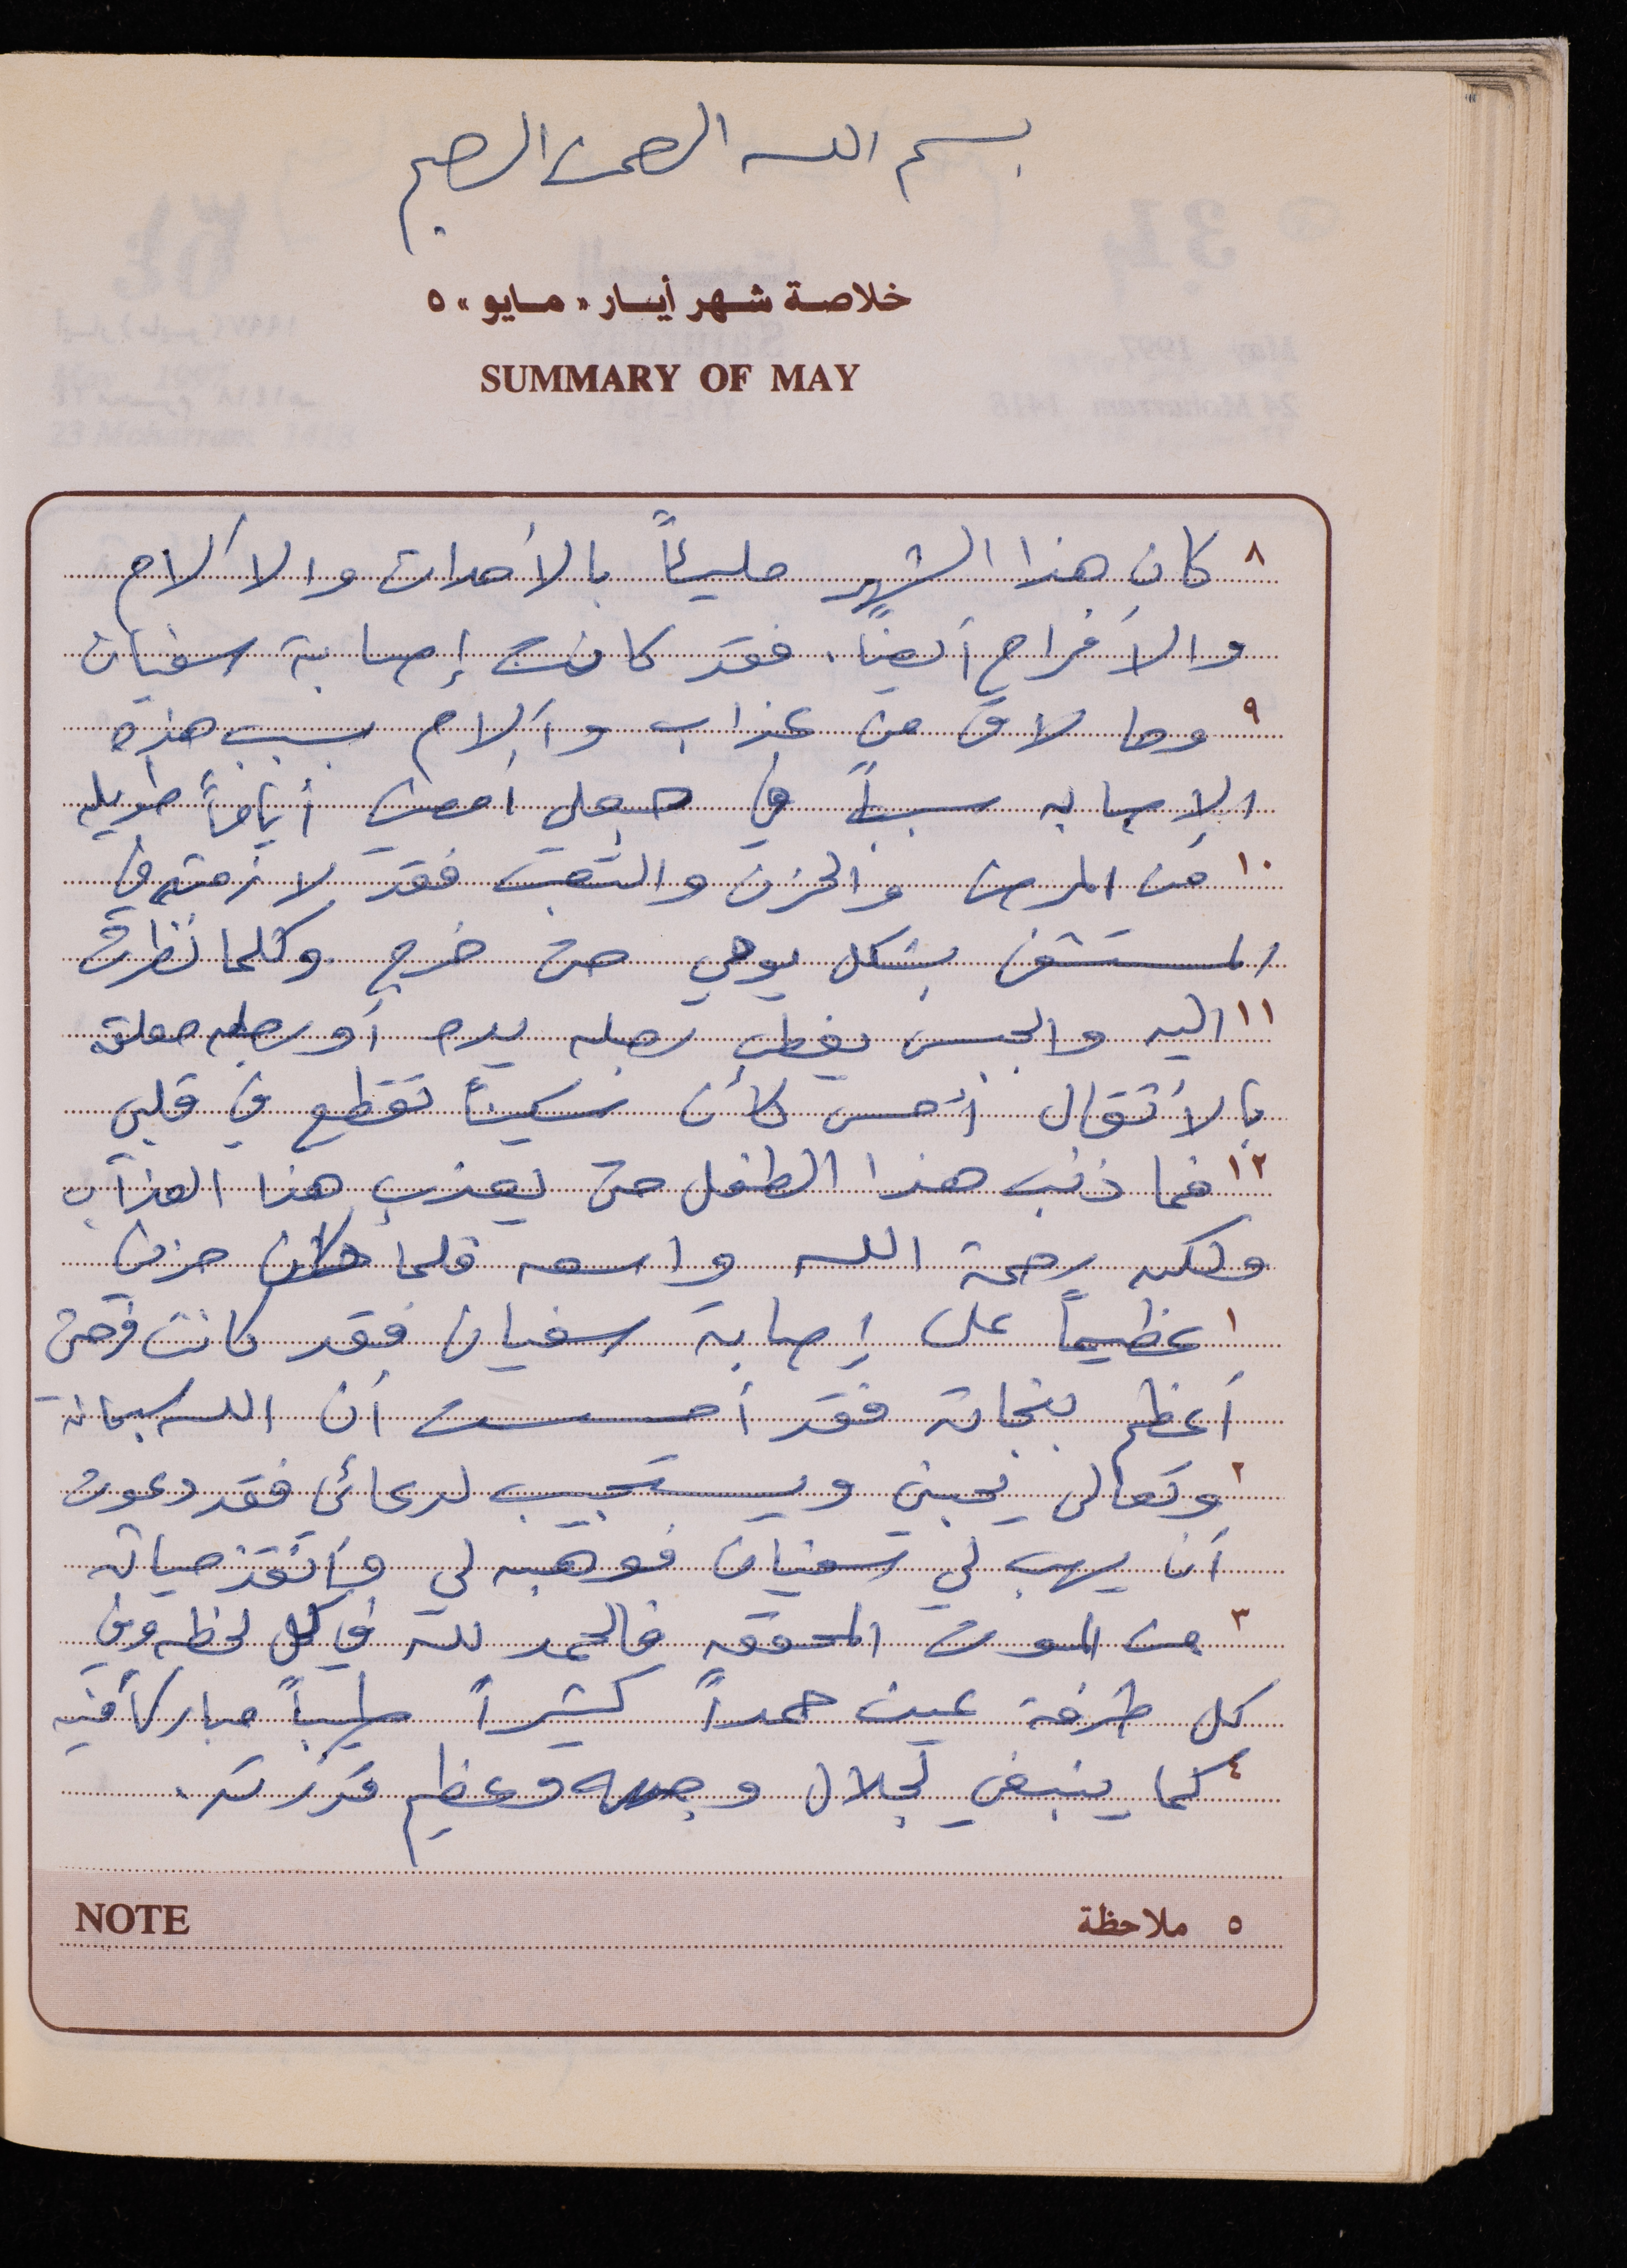 بسم الله الرحمن الرحيم
خلاصة شهر أيــار « مـايو » ٥
SUMMARY OF MAY
٨ كان هذا الشهر مليئاً بالأحداث والآلام
والأفراح أيضاً. فقد كانت إصابة سفيان
٩ وما لاقى من عذاب وآلام بسبب هذه
الإصابه سبباً في جعلي أمضي أياماً طويله
١٠ من المرض والحزن والتعب فقد لازمته في
المستشفى بشكل يومي حتى خرج وكلما نظرت
١١ اليه والجبس يغطي رجله يده أو رجله معلقه
بالأثقال أحس كأن سكيناً تقطع في قلبي
١٢ فما ذنب هذا الطفل حتى يعذب هذا العذاب
ولكن رحمة الله واسعه فلما كان حزني
١ عظيماً على إصابة سفيان فقد كانت فرحتي
أعظم بنجاته فقد أحسست أن الله سبحانه
٢ وتعالى يحبني ويستجيب لدعائي فقد دعوت
أن يهب لي سفيان فوهبه لي وأنقذ حياته
٣ من الموت المحقق فالحمد لله في كل لحظه وفي
كل طرفة عين حمداً كثيراً طيباً مباركاً فيه
٤ كما ينبغي لجلال وجهه وعظيم قدرته.
NOTE ٥ ملاحظة